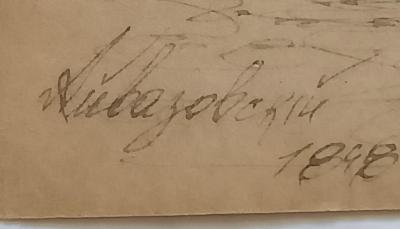 Айвазовскій
1848